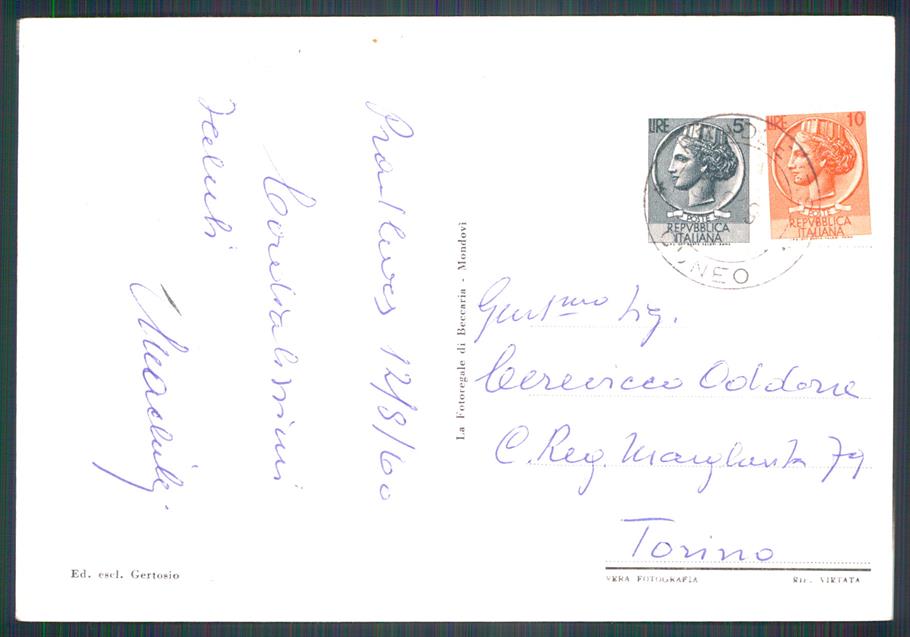 Pradleves 12/8/60
Cordialissimi
saluti
LIRE 5
POSTE
REPVBBLICA
ITALIANA
LIRE 10
POSTE
REPVBBLICA
ITALIANA
CUNEO
Gent.mo Sig.
Cerevicco Oddone
C. Reg. Margherita 79
Torino
La Fotoregale di Beccaria - Mondovì
Ed. escl. Gertosio
VERA FOTOGRAFIA
RIP. VIETATA